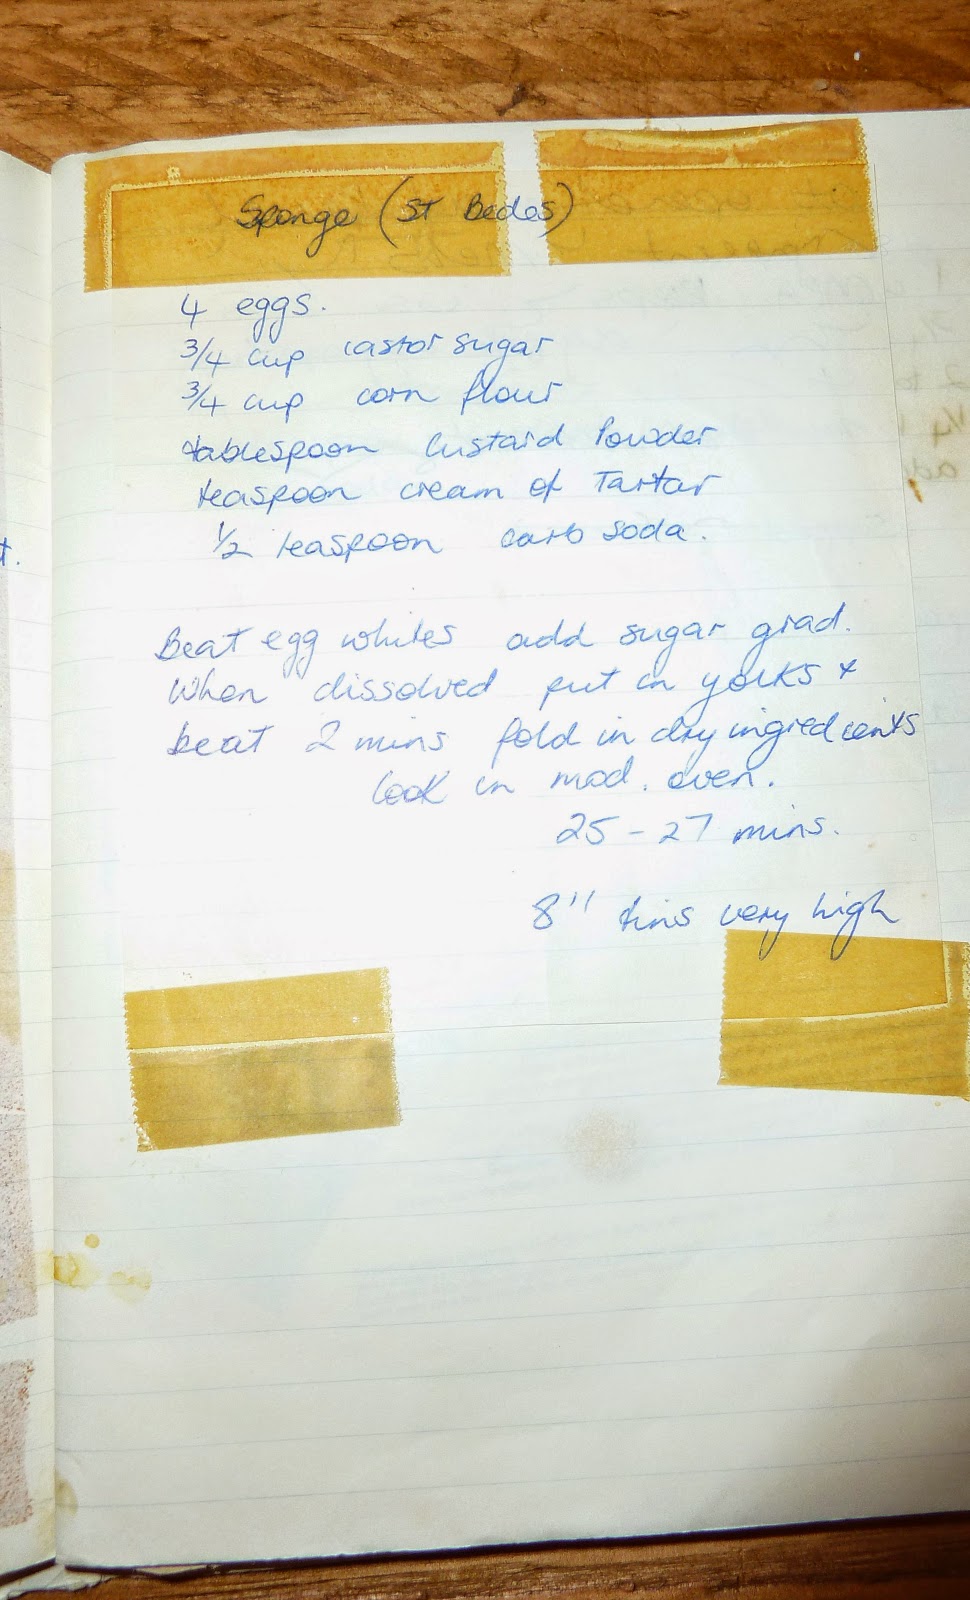 Sponge (St Bedes)
4 eggs.
3/4 cup castor sugar
3/4 cup corn flour
tablespoon Custard Powder
teaspoon cream of Tartar
1/2 teaspoon carb soda.
Beat egg whites add sugar grad.
When dissolved put in yolks +
beat 2 mins fold in dry ingredients
Cook in mod. oven.
25 - 27 mins.
8" tins very high
t.